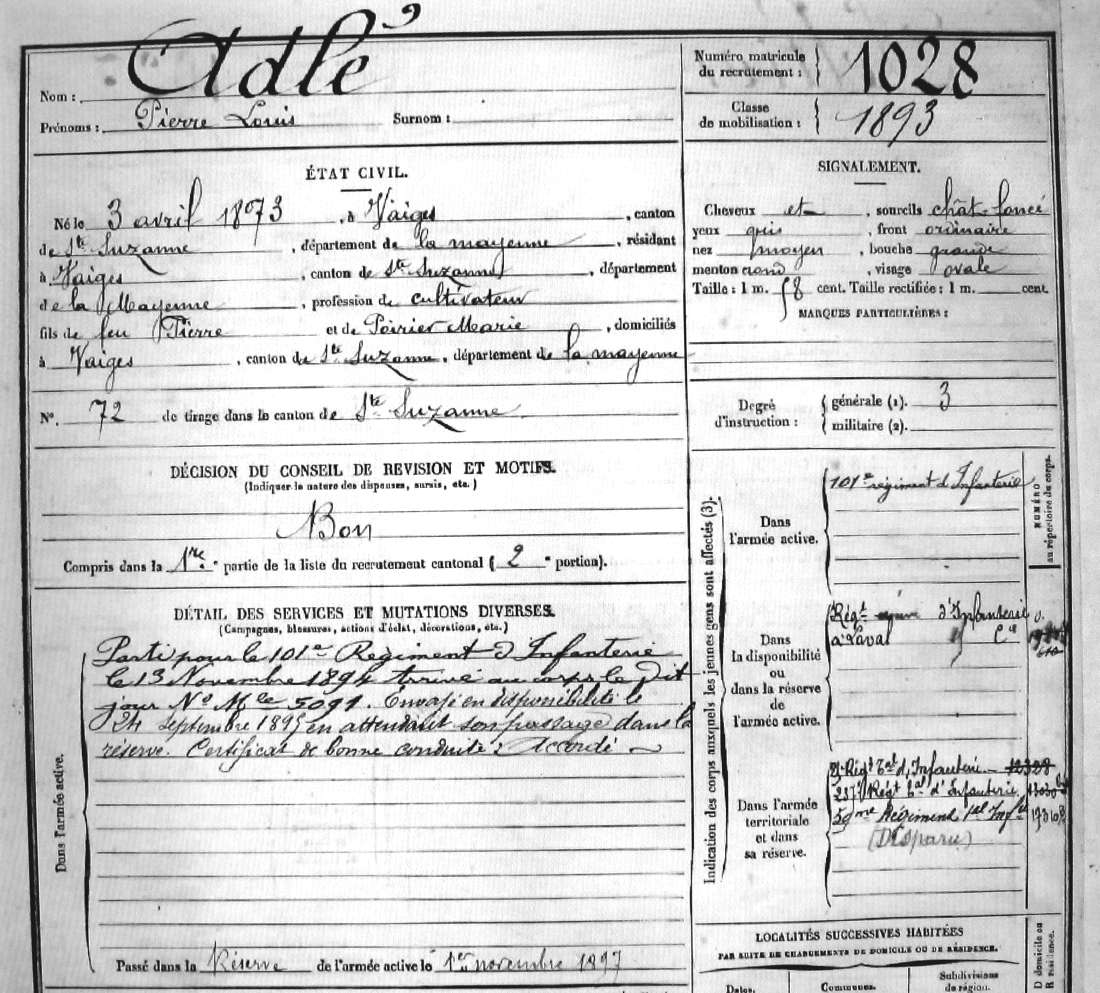 Nom : Adlé
Prénoms : Pierre Louis Surnom :
Numéro matricule du recrutement : 1028
Classe de mobilisation : 1893
ÉTAT CIVIL.
Né le 3 avril 1873, à Vaiges, canton
de Ste Suzanne, département de la mayenne, résidant
à Vaiges, canton de Ste Suzanne, département
de la Mayenne, profession de cultivateur
fils de feu Pierre et de Poirier Marie, domiciliés
à Vaiges, canton de Ste Suzanne, département de la mayenne
N°. 72 de tirage dans le canton de Ste Suzanne
SIGNALEMENT.
Cheveux et sourcils chât. foncé
yeux gris, front ordinaire
nez moyen, bouche grande
menton rond, visage ovale
Taille : 1 m. 58 cent. Taille rectifiée : 1 m. cent.
MARQUES PARTICULIÈRES :
Degré d'instruction : générale (1). 3
militaire (2).
DÉCISION DU CONSEIL DE REVISION ET MOTIFS.
(Indiquer la nature des dispenses, sursis, etc.)
Bon
Compris dans la 1re partie de la liste du recrutement cantonal (2e portion).
DÉTAIL DES SERVICES ET MUTATIONS DIVERSES.
(Campagnes, blessures, actions d'éclat, décorations, etc.)
Dans l'armée active.
Parti pour le 101e Régiment d'Infanterie
le 13 Novembre 1894 arrivé au corps le dit
jour N° Mle 5091. Envoyé en disponibilité le
24 septembre 1895 en attendant son passage dans la
réserve. Certificat de bonne conduite : Accordé
Passé dans la Réserve de l'armée active le 1er novembre 1897
Indication des corps auxquels les jeunes gens sont affectés (3).
NUMÉRO au répertoire du corps.
Dans l'armée active.
101e régiment d'Infanterie
Dans la disponibilité ou dans la réserve de l'armée active.
Régt d'Infanterie
à Laval
Dans l'armée territoriale et dans sa réserve.
Régt Tal d'Infanterie 12328
Régt Tal d'Infanterie
59me Régiment Tal Infie
(Disparu)
LOCALITÉS SUCCESSIVES HABITÉES
PAR SUITE DE CHANGEMENTS DE DOMICILE OU DE RÉSIDENCE.
Dates. Communes. Subdivisions de région.
D domicile ou R résidence.